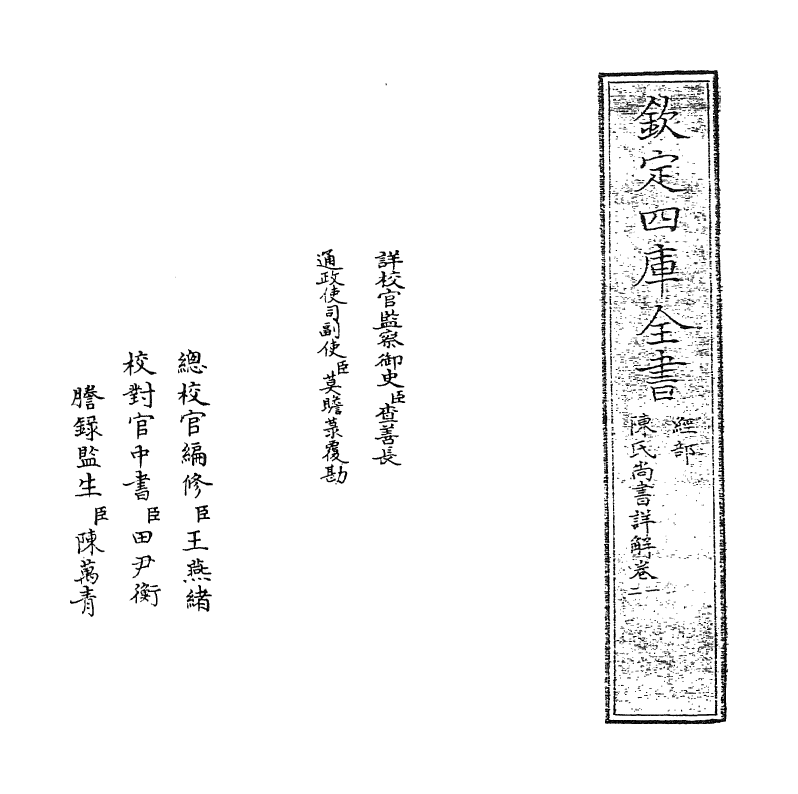 欽定四庫全書
經部
陳氏尚書詳解卷一二
詳校官監察御史臣查善長
通政使司副使臣莫瞻菉覆勘
總校官編修臣王燕緒
校對官中書臣田尹衡
謄錄監生臣陳萬青